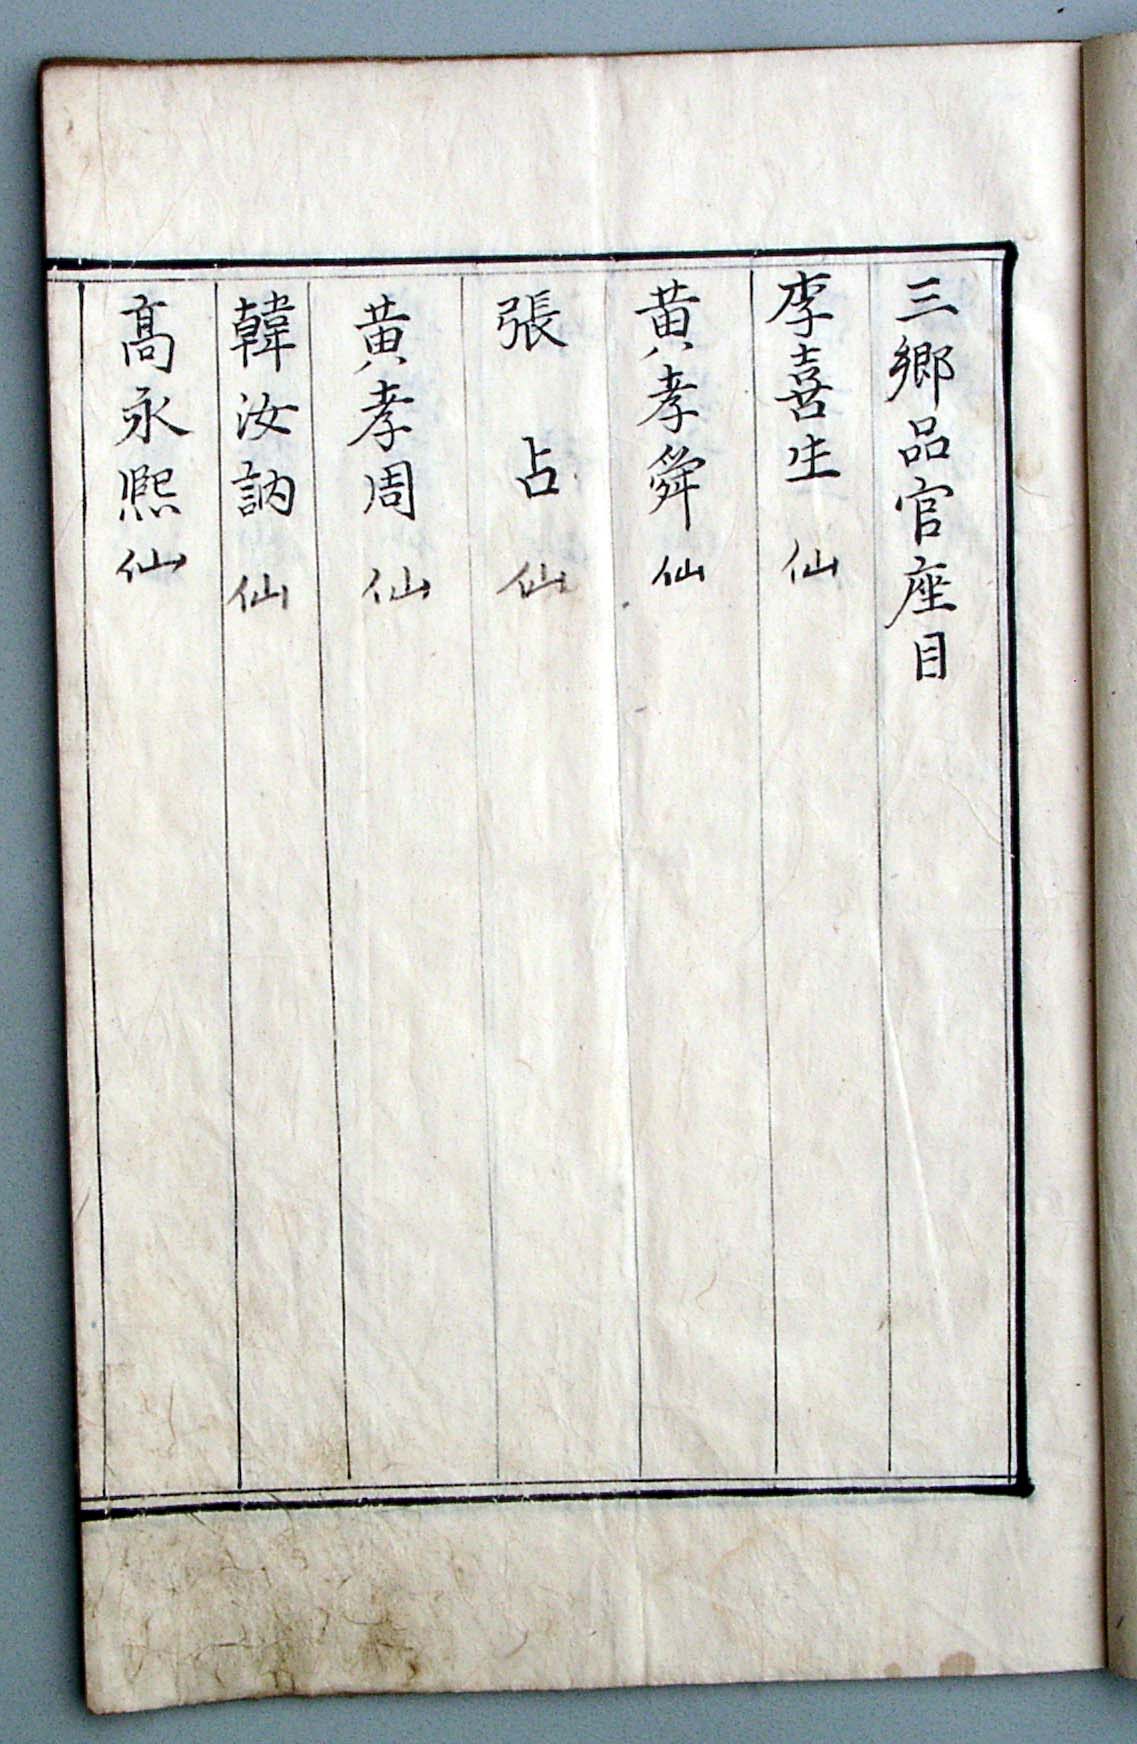 三鄉品官座目
李喜生 仙
黃孝舜 仙
張 占 仙
黃孝周 仙
韓汝訥 仙
髙永熙 仙